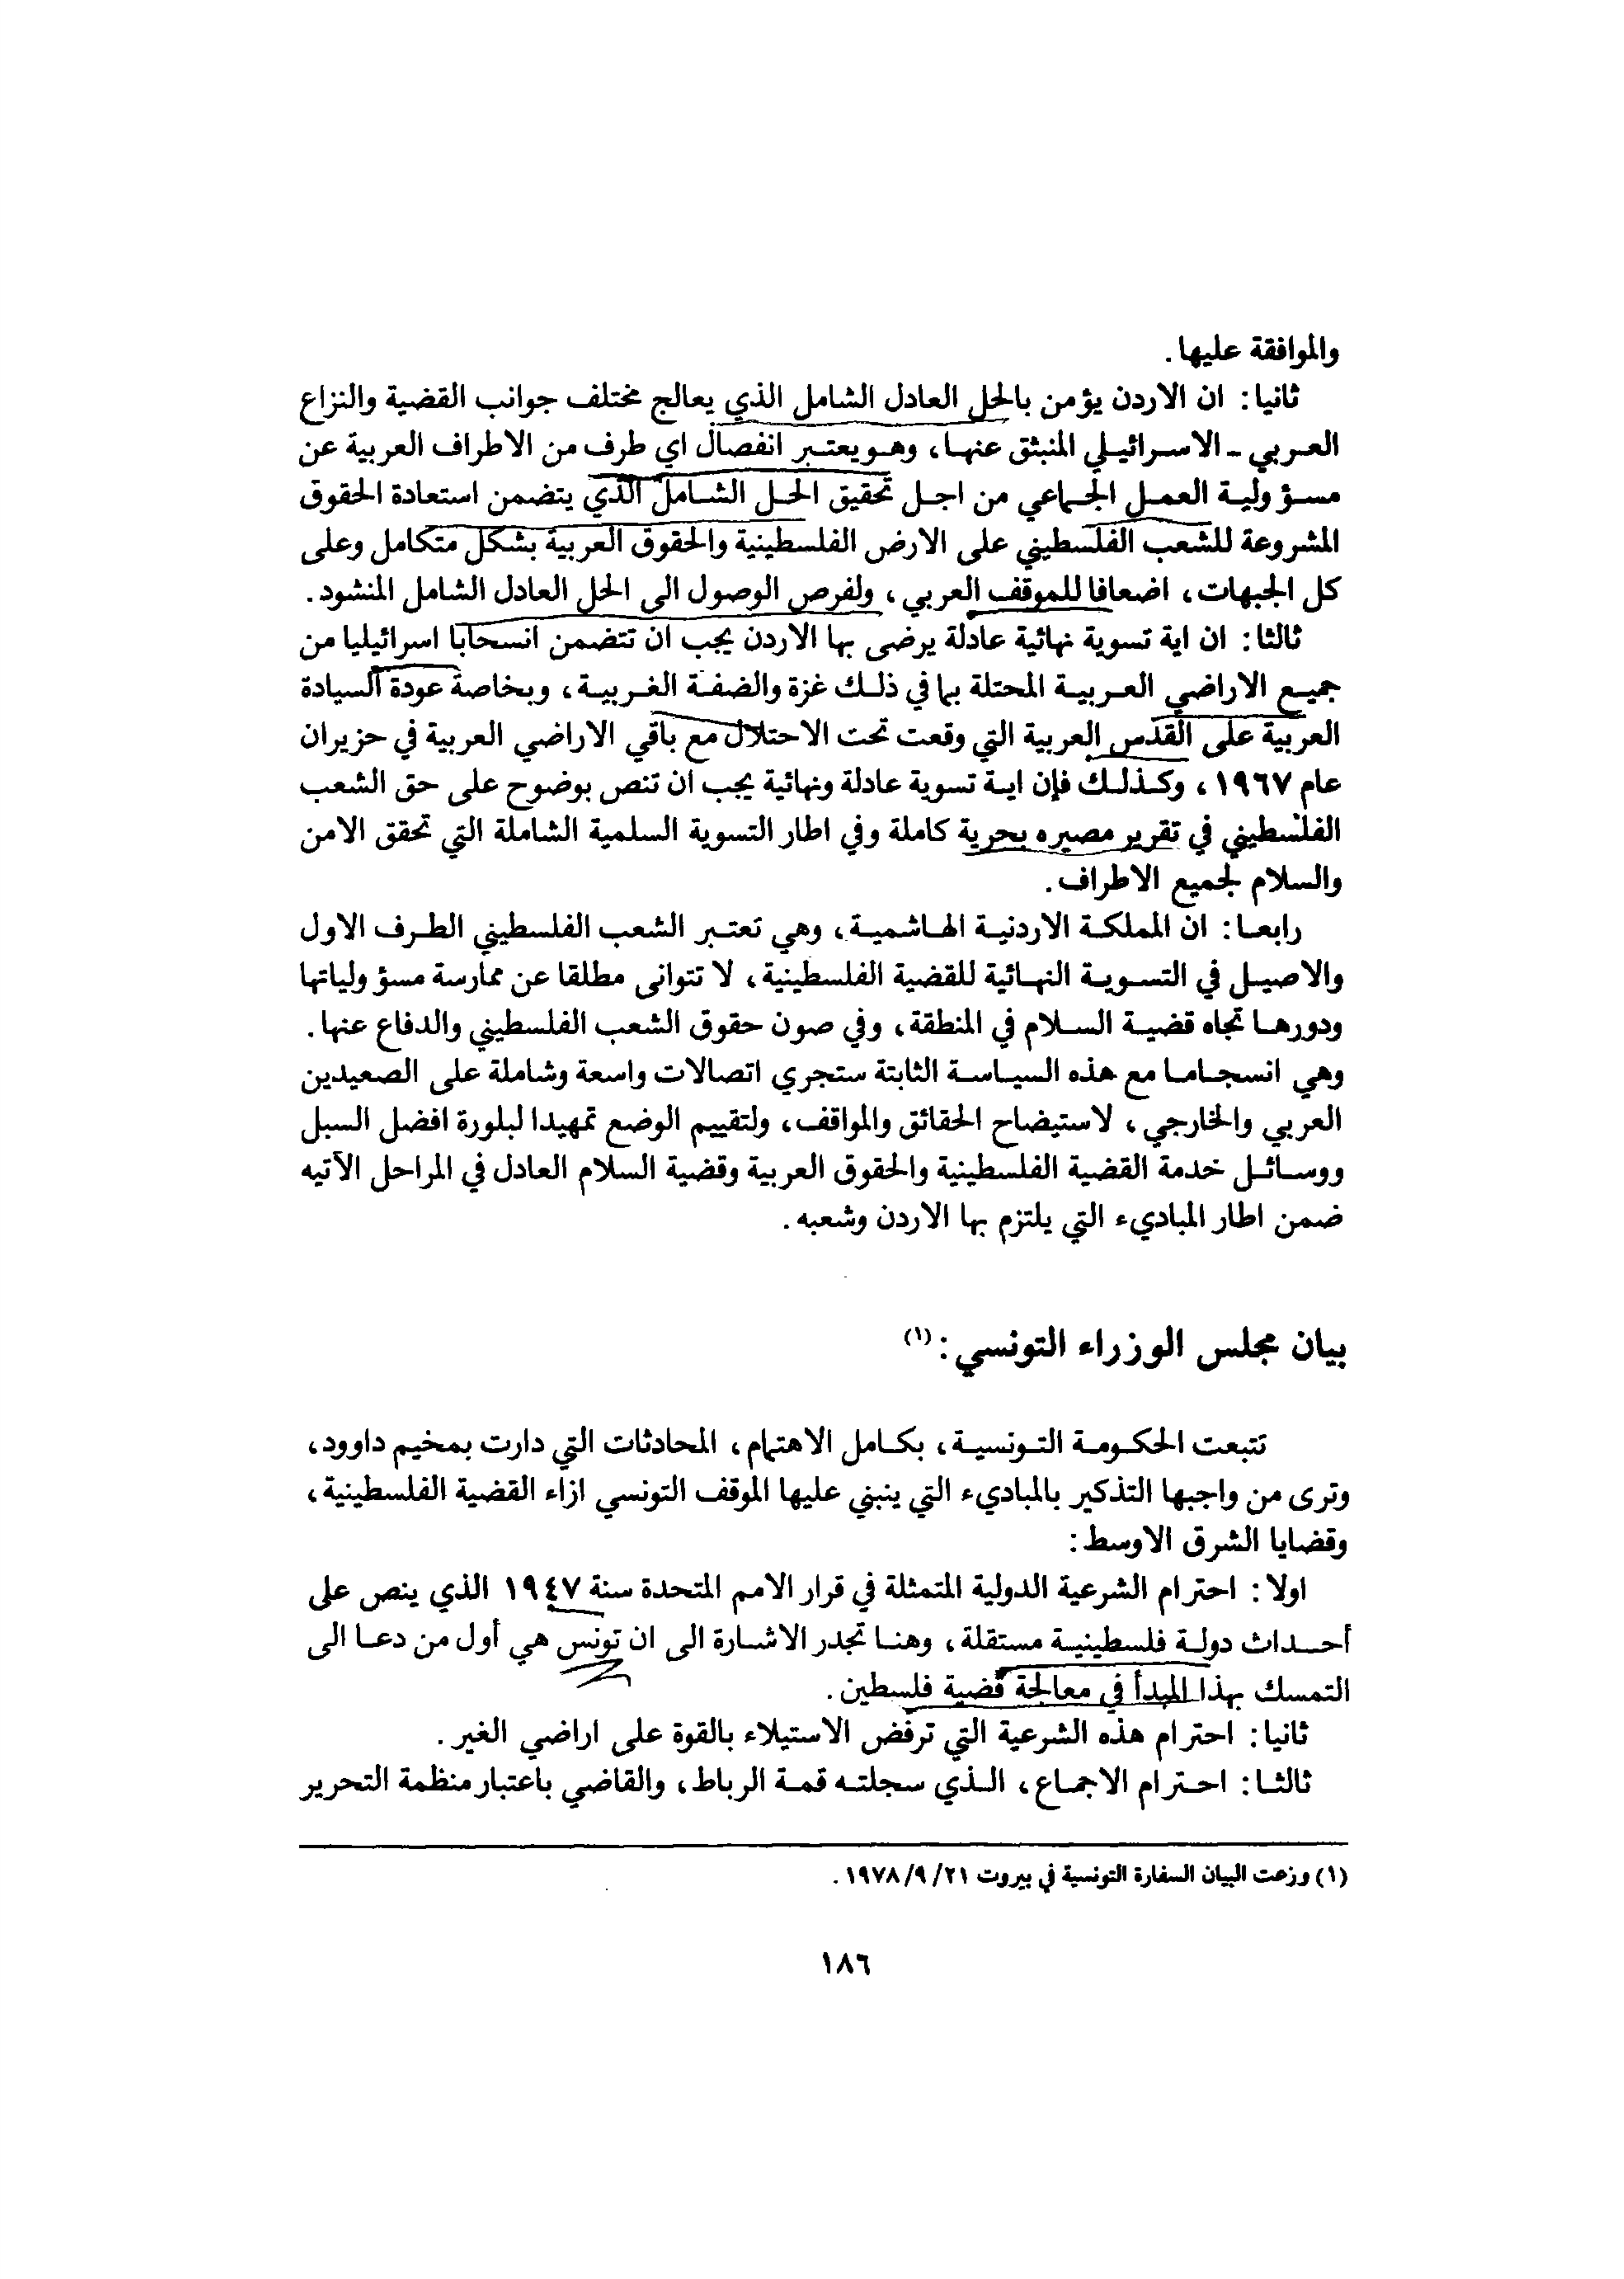 والموافقة عليها.
ثانيا: ان الاردن يؤمن بالحل العادل الشامل الذي يعالج مختلف جوانب القضية والنزاع
العربي - الاسرائيلي المنبثق عنها، وهو يعتبر انفصال اي طرف من الاطراف العربية عن
مسؤولية العمل الجماعي من اجل تحقيق الحل الشامل الذي يتضمن استعادة الحقوق
المشروعة للشعب الفلسطيني على الارض الفلسطينية والحقوق العربية بشكل متكامل وعلى
كل الجبهات، اضعافا للموقف العربي، ولفرص الوصول الى الحل العادل الشامل المنشود.
ثالثا: ان اية تسوية نهائية عادلة يرضى بها الاردن يجب ان تتضمن انسحابا اسرائيليا من
جميع الاراضي العربية المحتلة بما في ذلك غزة والضفة الغربية، وبخاصة عودة السيادة
العربية على القدس العربية التي وقعت تحت الاحتلال مع باقي الاراضي العربية في حزيران
عام ١٩٦٧، وكذلك فإن اية تسوية عادلة ونهائية يجب ان تنص بوضوح على حق الشعب
الفلسطيني في تقرير مصيره بحرية كاملة وفي اطار التسوية السلمية الشاملة التي تحقق الامن
والسلام لجميع الاطراف.
رابعا: ان المملكة الاردنية الهاشمية، وهي تعتبر الشعب الفلسطيني الطرف الاول
والاصيل في التسوية النهائية للقضية الفلسطينية، لا تتوانى مطلقا عن ممارسة مسؤولياتها
ودورها تجاه قضية السلام في المنطقة، وفي صون حقوق الشعب الفلسطيني والدفاع عنها.
وهي انسجاما مع هذه السياسة الثابتة ستجري اتصالات واسعة وشاملة على الصعيدين
العربي والخارجي، لاستيضاح الحقائق والمواقف، ولتقييم الوضع تمهيدا لبلورة افضل السبل
ووسائل خدمة القضية الفلسطينية والحقوق العربية وقضية السلام العادل في المراحل الآتيه
ضمن اطار المباديء التي يلتزم بها الاردن وشعبه.
بيان مجلس الوزراء التونسي: (١)
تتبعت الحكومة التونسية، بكامل الاهتمام، المحادثات التي دارت بمخيم داوود،
وترى من واجبها التذكير بالمباديء التي ينبني عليها الموقف التونسي ازاء القضية الفلسطينية،
وقضايا الشرق الاوسط:
اولا: احترام الشرعية الدولية المتمثلة في قرار الامم المتحدة سنة ١٩٤٧ الذي ينص على
أحداث دولة فلسطينية مستقلة، وهنا تجدر الاشارة الى ان تونس هي أول من دعا الى
التمسك بهذا المبدأ في معالجة قضية فلسطين.
ثانيا: احترام هذه الشرعية التي ترفض الاستيلاء بالقوة على اراضي الغير.
ثالثا: احترام الاجماع، الذي سجلته قمة الرباط، والقاضي باعتبار منظمة التحرير
(١) وزعت البيان السفارة التونسية في بيروت ٢١/ ٩/ ١٩٧٨.
١٨٦